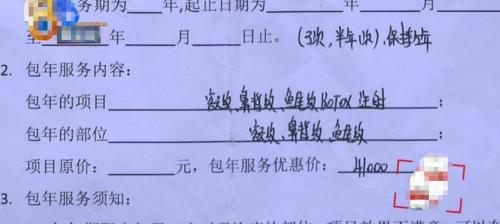 务期为____年,起止日期为____年____月
至____年____月____日止。(3次,半年1次),保持1年
2. 包年服务内容:
包年的项目____纹、鼻背纹、鱼尾纹BOTOX注射____;
包年的部位____纹、鼻背纹、鱼尾纹____;
项目原价:____元,包年服务优惠价:41000
3. 包年服务须知: